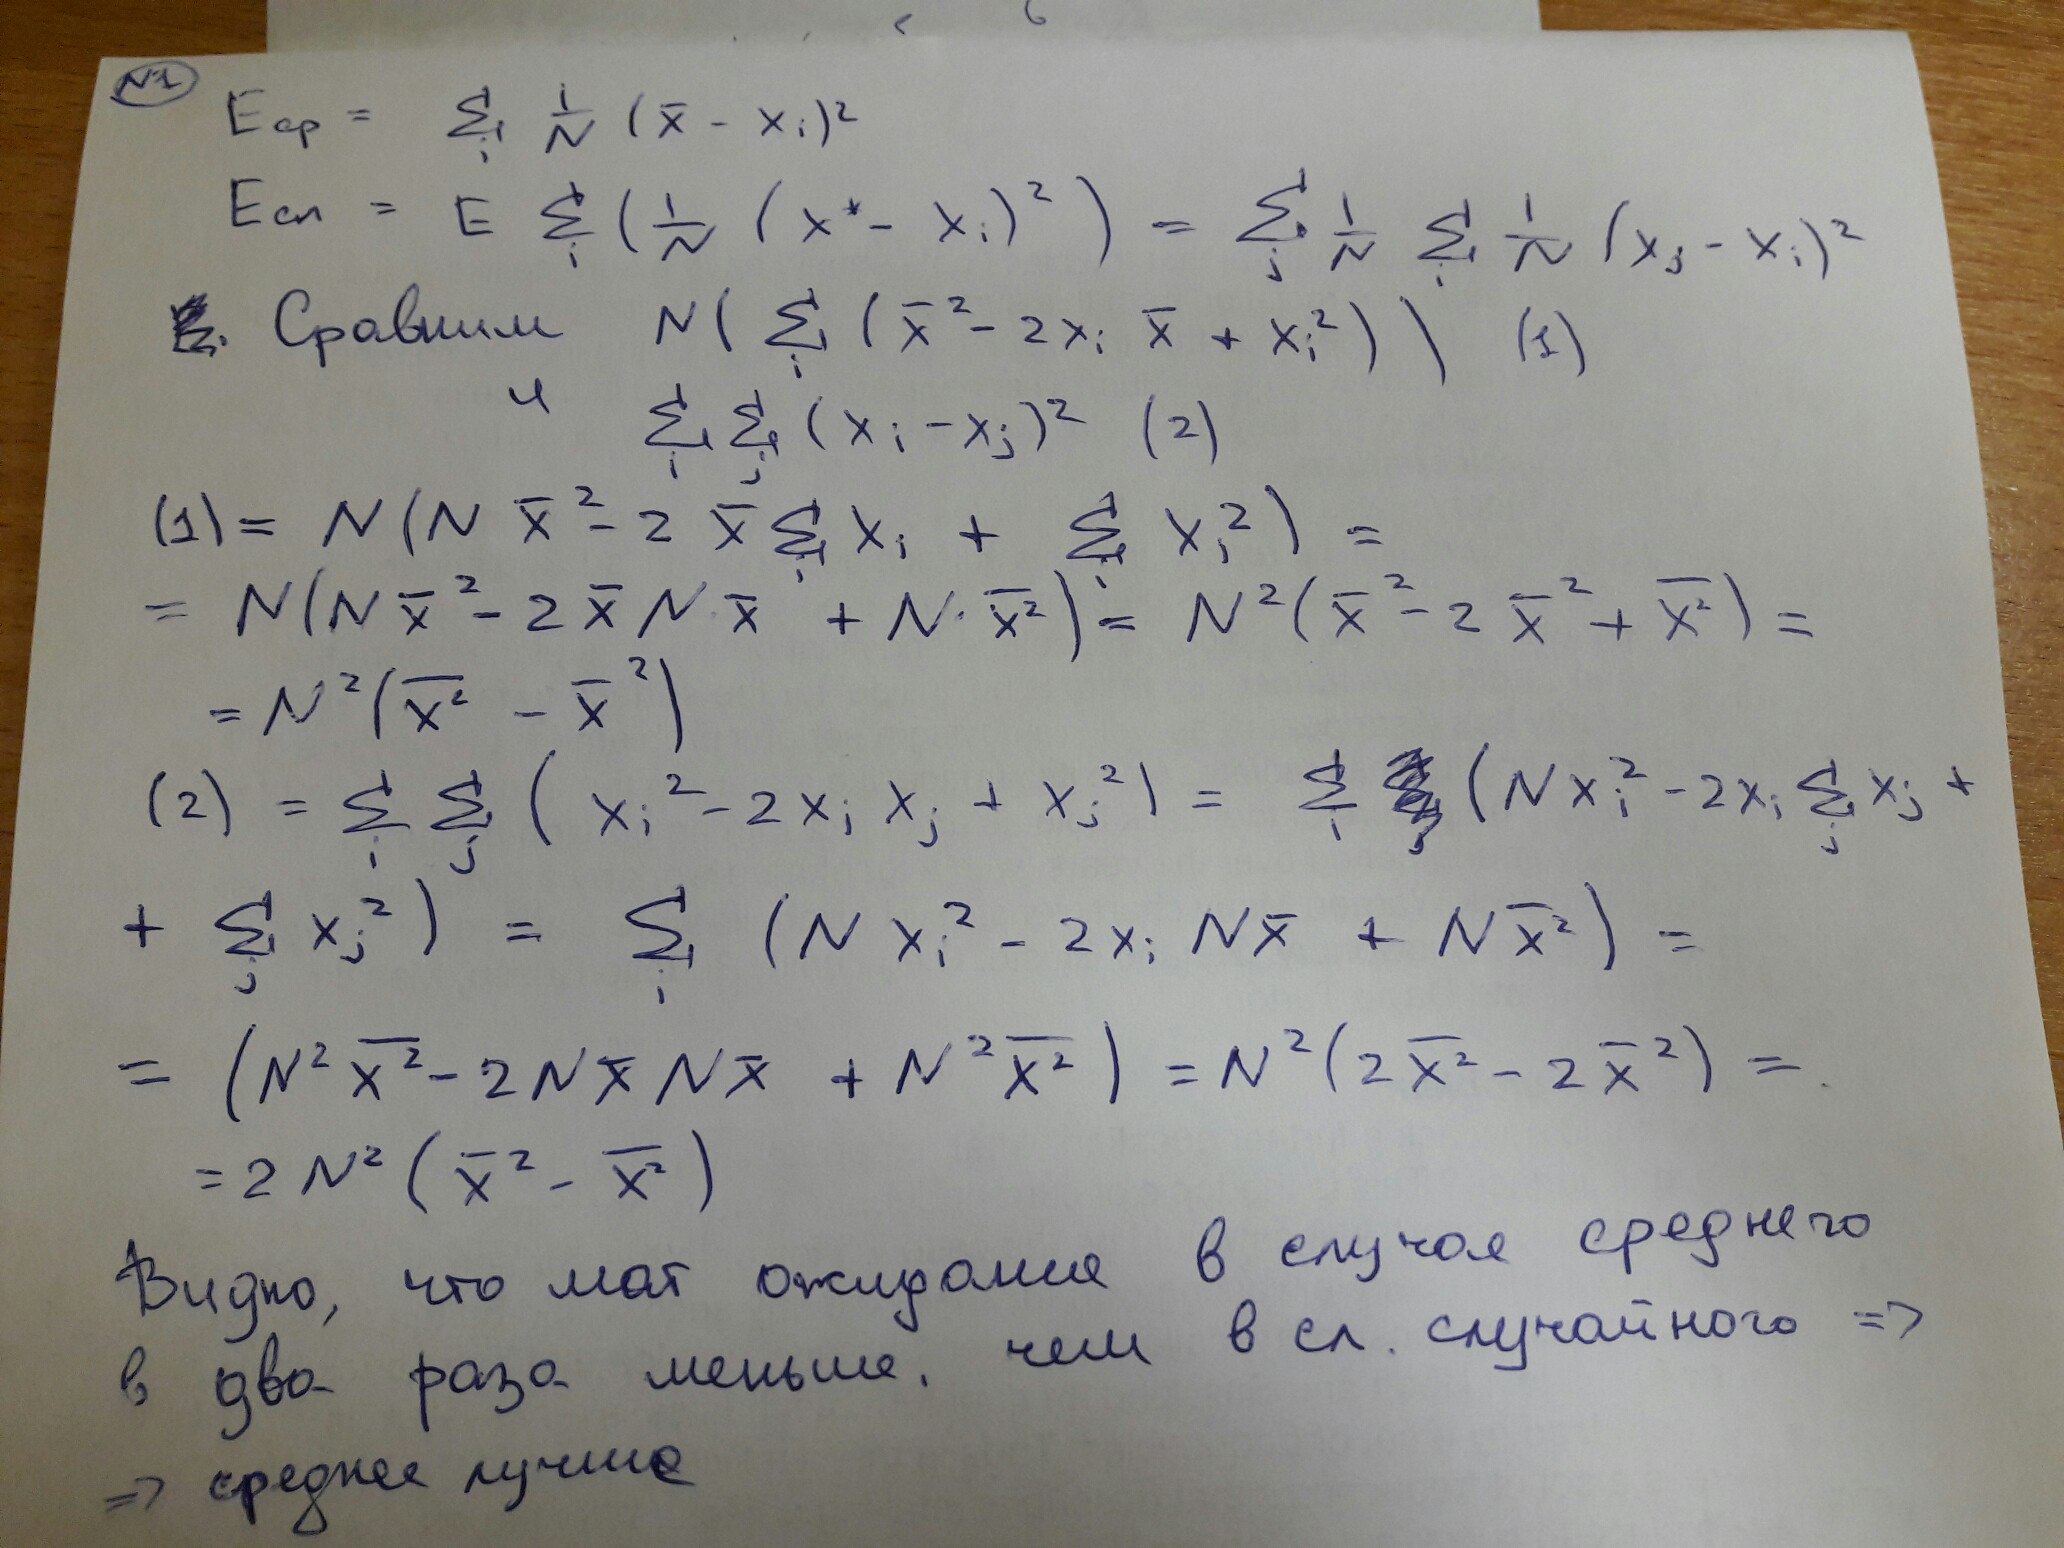 N1
Eср = Σ_i 1/N (x̄ - x_i)²
Eсл = E Σ_i (1/N (x* - x_i)²) = Σ_j 1/N Σ_i 1/N (x_j - x_i)²
Сравним N(Σ_i (x̄² - 2x_i x̄ + x_i²)) (1)
и Σ_i Σ_j (x_i - x_j)² (2)
(1) = N(N x̄² - 2 x̄ Σ_i x_i + Σ_i x_i²) =
= N(N x̄² - 2 x̄ N · x̄ + N · \overline{x²}) = N²(x̄² - 2 x̄² + \overline{x²}) =
= N²(\overline{x²} - x̄²)
(2) = Σ_i Σ_j (x_i² - 2x_i x_j + x_j²) = Σ_i (N x_i² - 2x_i Σ_j x_j +
+ Σ_j x_j²) = Σ_i (N x_i² - 2x_i N x̄ + N \overline{x²}) =
= (N² \overline{x²} - 2N x̄ N x̄ + N² \overline{x²}) = N²(2 \overline{x²} - 2 x̄²) =
= 2N²(x̄² - \overline{x²})
Видно, что мат ожидание в случае среднего
в два раза меньше, чем в сл. случайного =>
=> среднее лучше